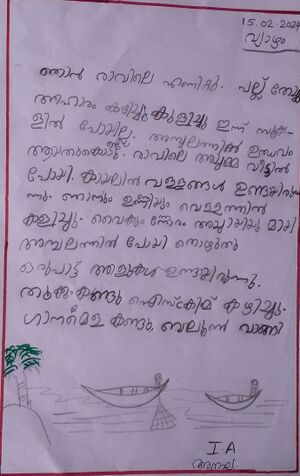 15.02.2024
വ്യാഴം
ഞാൻ രാവിലെ എണിറ്റു. പല്ല് തേച്ചു
ആഹാരം കഴിച്ചു കുളിച്ചു ഇന്ന് സ്കൂ
ളിൽ പോയില്ല. അമ്പലത്തിൽ ഉത്സവം
ആയതുകൊണ്ട് രാവിലെ അച്ഛമ്മ വീട്ടിൽ
പോയി. കായലിൽ വള്ളങ്ങൾ ഉണ്ടായിരു
ന്നു. ഞാനും ഉണ്ണിയും വെള്ളത്തിൽ
കളിച്ചു. വൈകും നേരം അച്ഛായിയു മായി
അമ്പലത്തിൽ പോയി തൊഴുതു
ഒരുപാട് ആളുകൾ ഉണ്ടായിരുന്നു.
തൂക്കംകണ്ടു ഐസ്ക്രീമ് കഴിച്ചു.
ഗാനമേള കണ്ടു. ബലൂൺ വാങ്ങി
I A